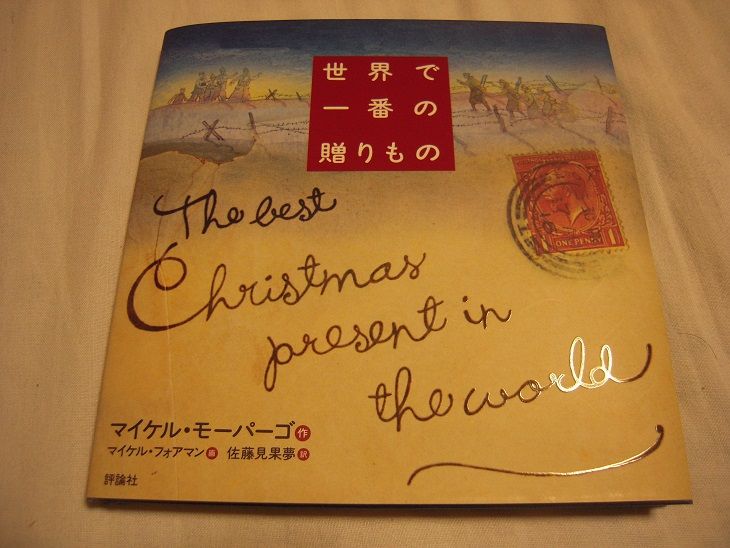 世界で
一番の
贈りもの
The best
Christmas
present in
the world
ONE PENNY
マイケル・モーパーゴ 作
マイケル・フォアマン 画 佐藤見果夢 訳
評論社